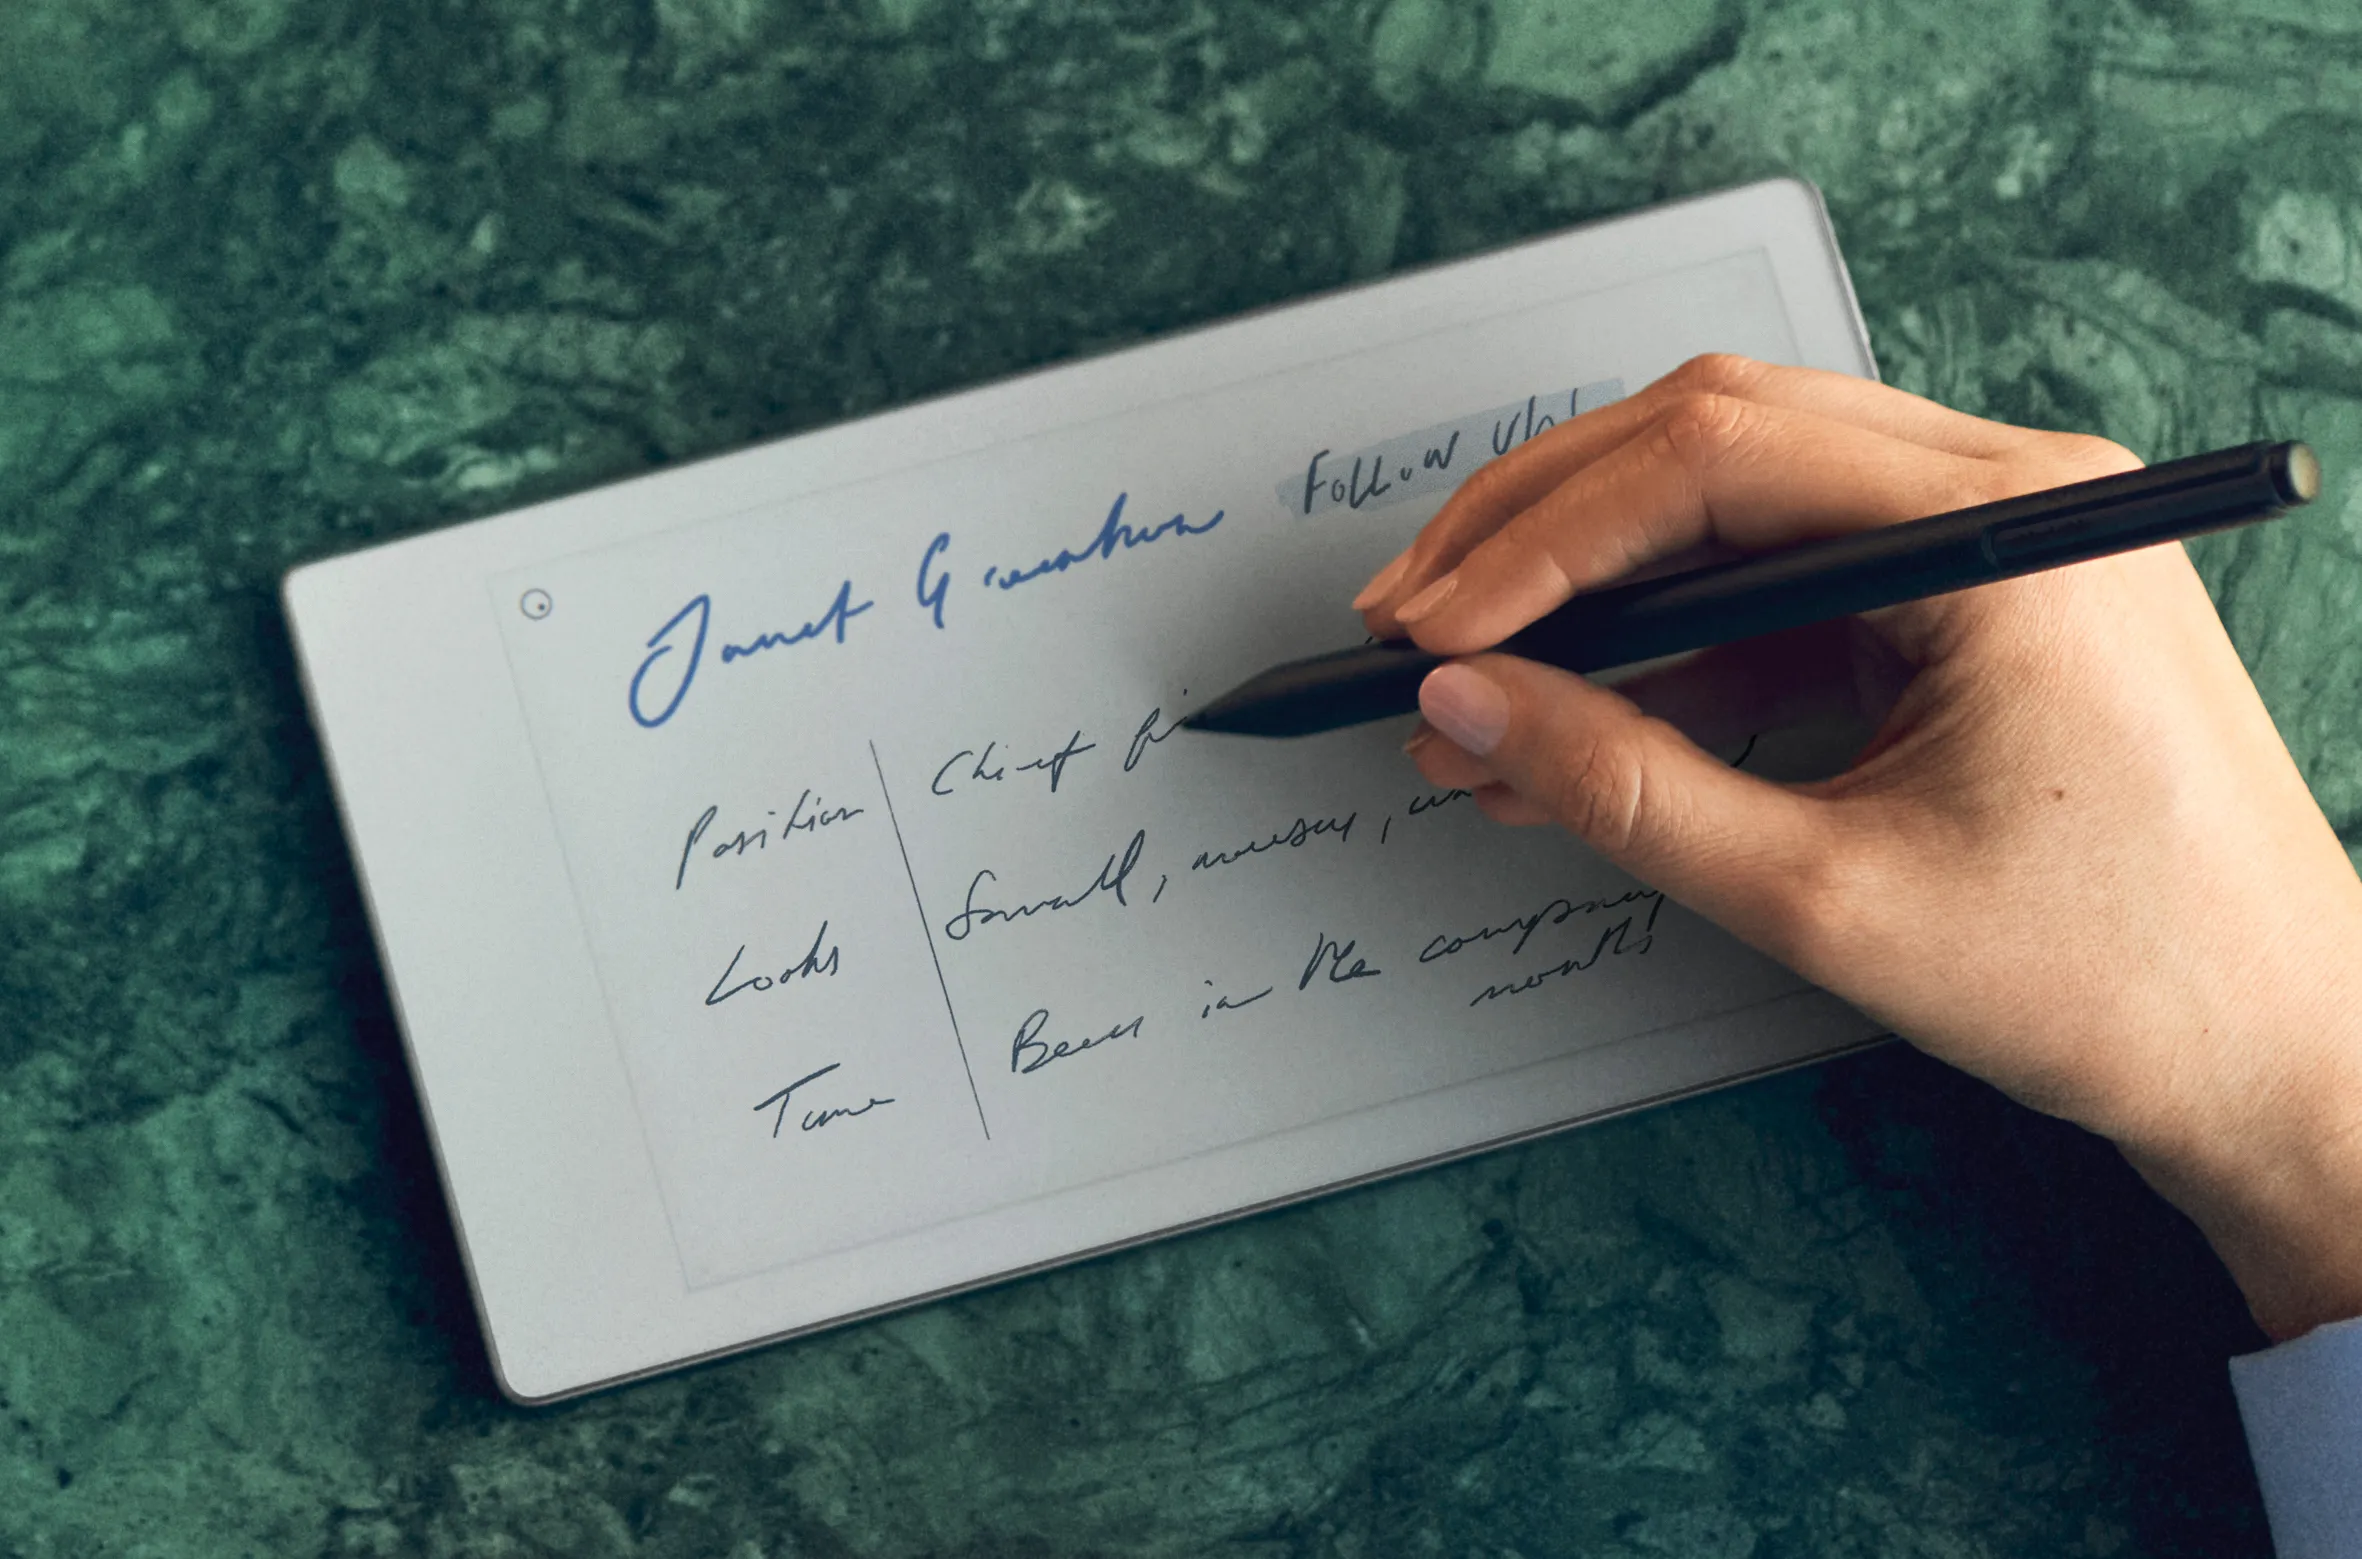 Janet Follow up!
Position Chief
Looks Small, mousy,
Time Been in the company
months